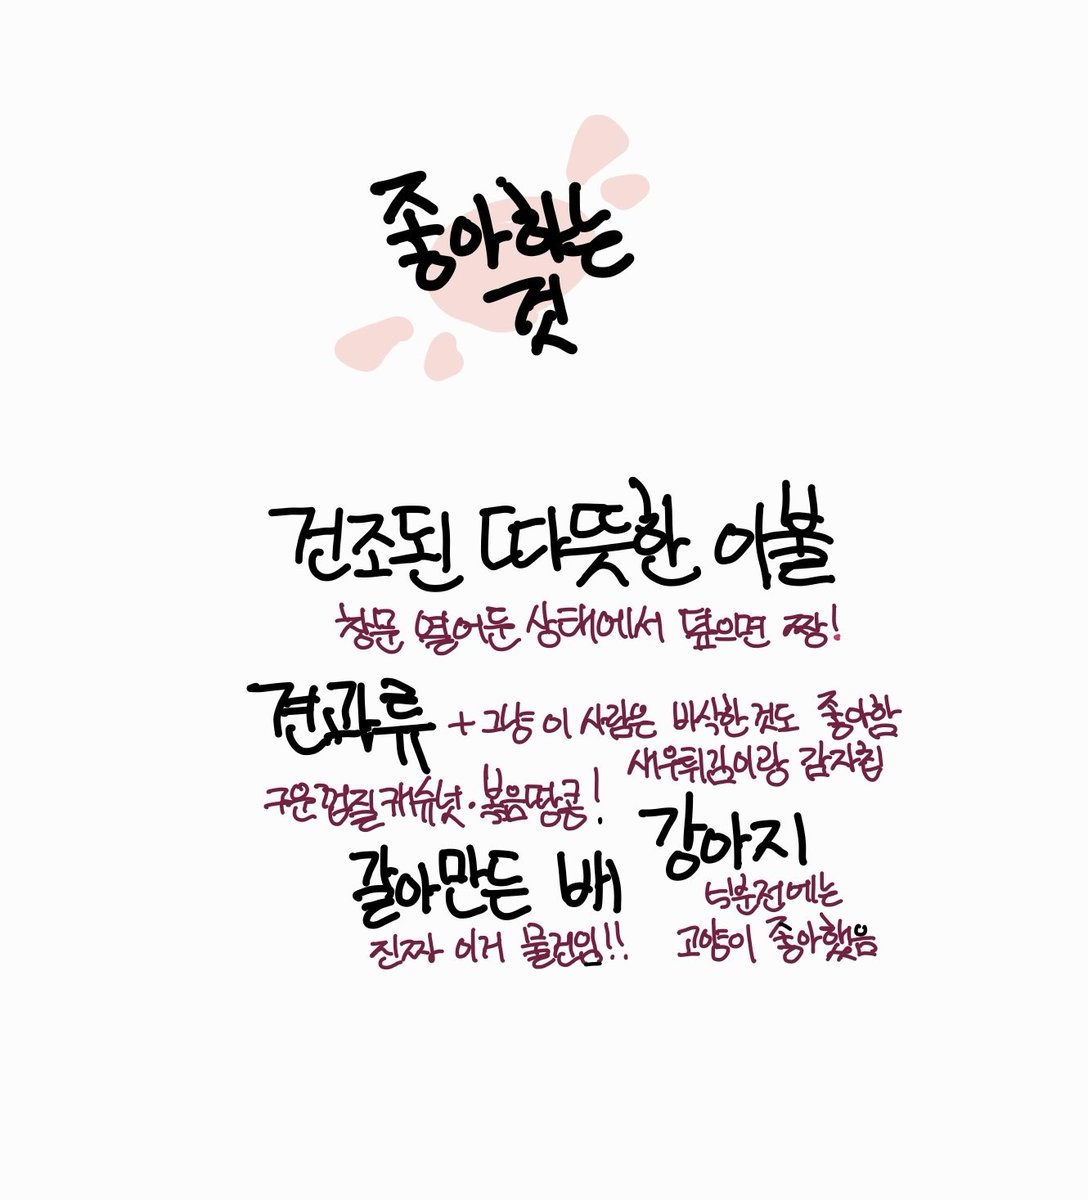 좋아하는
것
건조된 따뜻한 이불
창문 열어둔 상태에서 덮으면 짱!
견과류 + 그냥 이 사람은 바삭한것도 좋아함
새우튀김이랑 감자칩
구운껍질캐슈넛·볶음땅콩!
강아지
5분전에는
고양이 좋아했음
갈아만든 배
진짜 이거 물건임!!